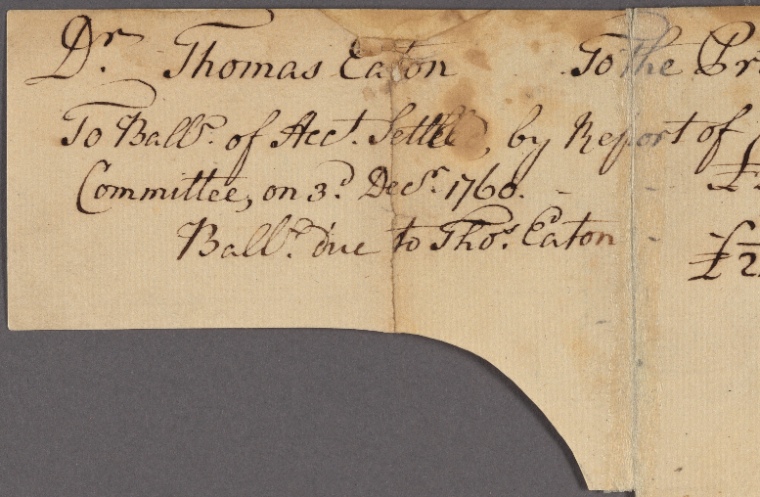 Dr. Thomas Eaton To the Pr
To Ballce. of Acct. Settled, by Report of
Committee, on 3d. Decr. 1760. - - £
Ballce. due to Thos. Eaton - £2